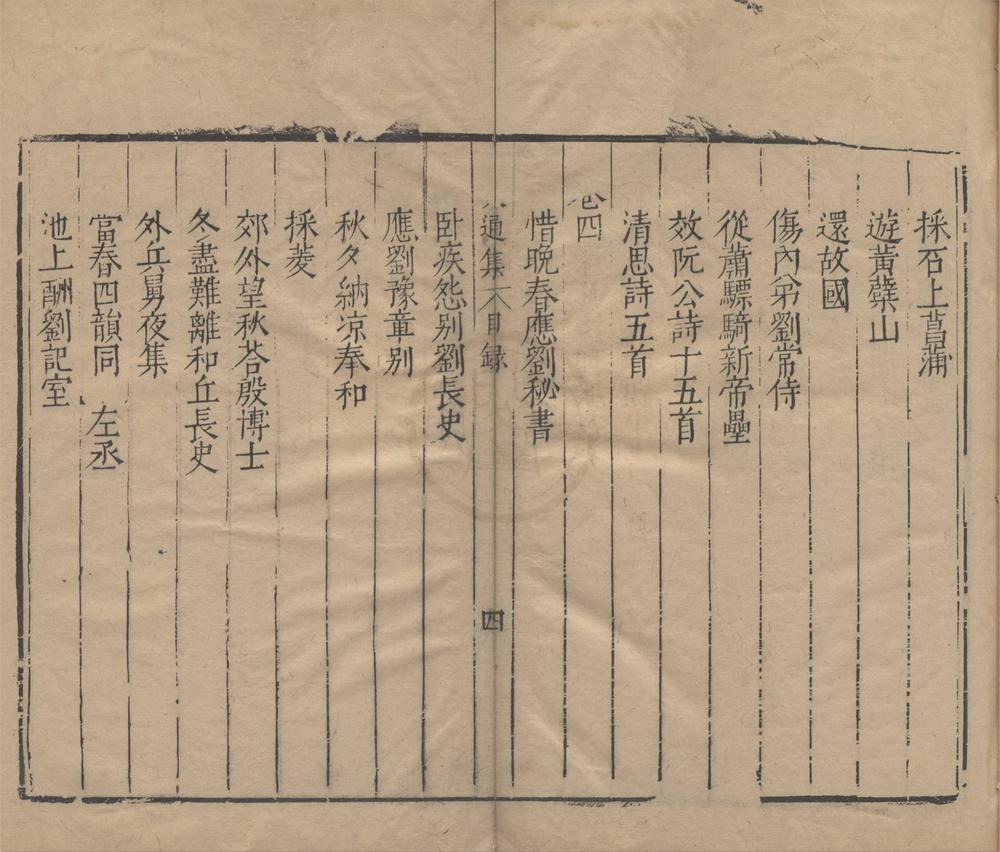 採石上菖蒲
遊黃糵山
還故國
傷內弟劉常侍
從蕭驃騎新帝壘
效阮公詩十五首
清思詩五首
卷四
惜晚春應劉秘書
通集 目録 四
卧疾怨别劉長史
應劉豫章别
秋夕納凉奉和
採菱
郊外望秋荅殷博士
冬盡難離和丘長史
外兵舅夜集
當春四韻同 左丞
池上酬劉記室